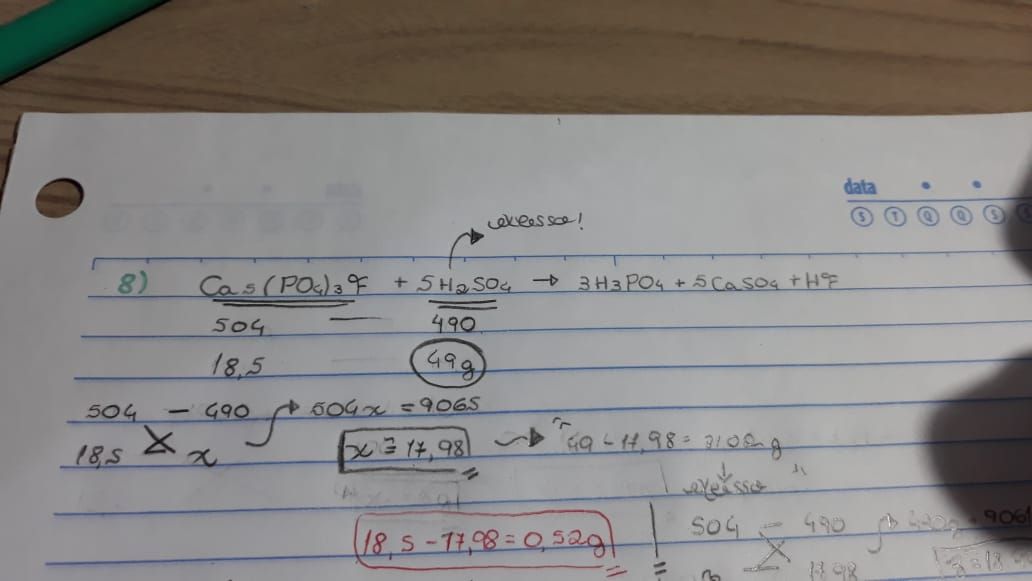 data
S T Q Q S
excesso!
8) Ca5(PO4)3F + 5H2SO4 → 3H3PO4 + 5CaSO4 + HF
504 490
18,5 49g
504 — 490 → 504x = 9065
18,5 x
x ≅ 17,98 → 49 - 17,98 = 31,02 g
excesso
18,5 - 17,98 = 0,52g
504 — 490
17,98